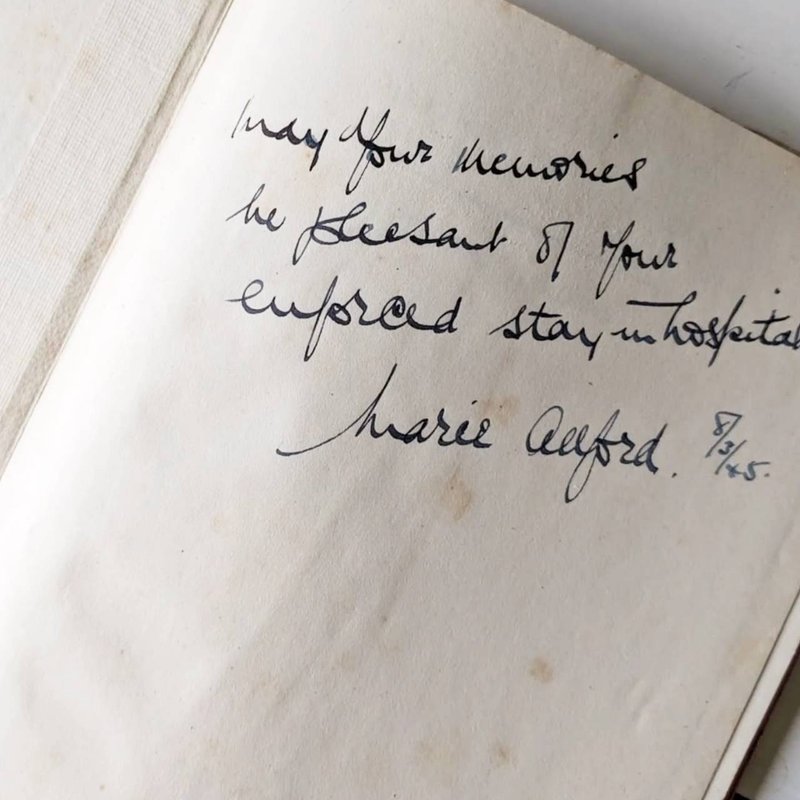 May Your Memories
be pleasant of Your
enforced stay in hospital
Marie 8/3/45.